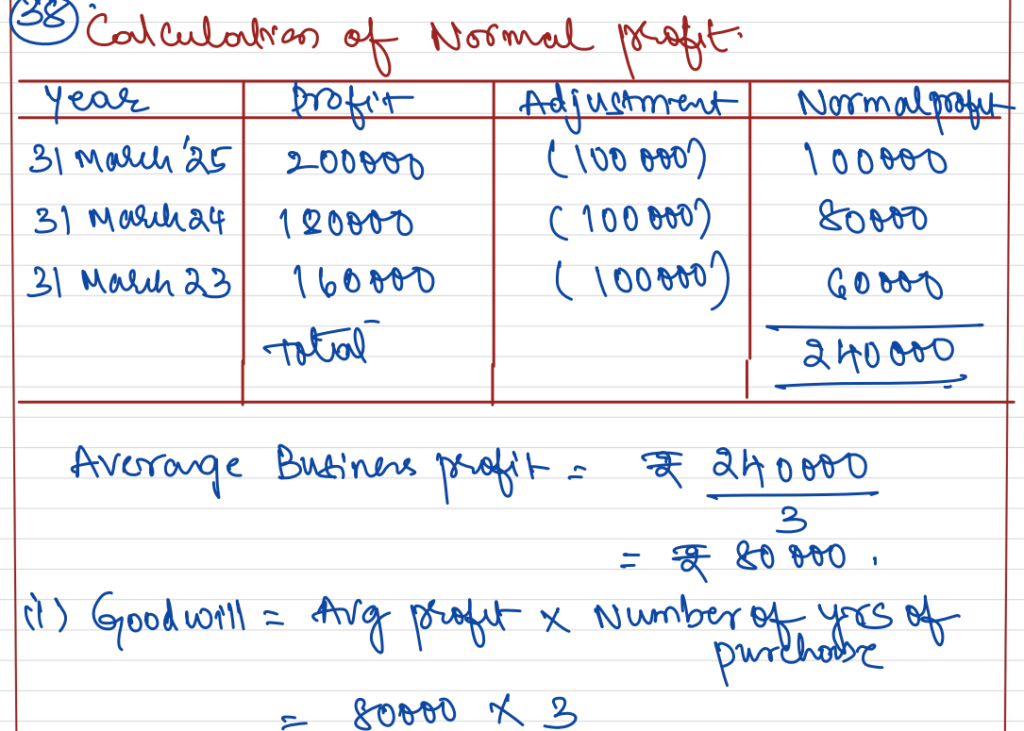 38 Calculation of Normal profit.
Year Profit Adjustment Normal profit
31 March '25 200000 (100000) 100000
31 March 24 180000 (100000) 80000
31 March 23 160000 (100000) 60000
Total 240000
Average Business profit = ₹ 240000
3
= ₹ 80000.
(i) Goodwill = Avg profit x Number of yrs of
purchase
= 80000 x 3